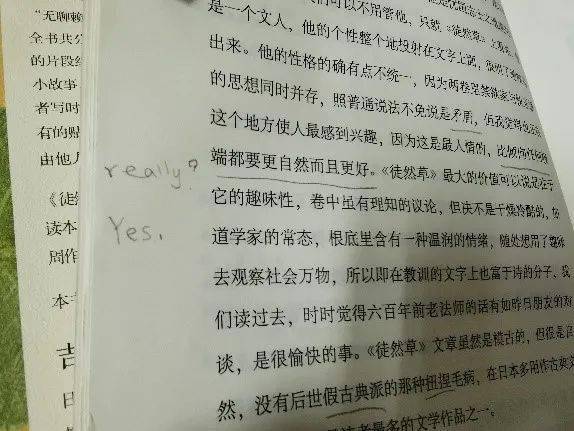 "无聊赖
全书共分
的片段经
小故事
者写时
有的贴
由他
《徒然
读本
周作
本书
吉
们可以不用管他，只就《徒然草》上
是一个文人，他的个性整个地投射在文字上面，
出来。他的性格的确有点不统一，因为两卷里禁欲家与
的思想同时并存，照普通说法不免说是矛盾，但我觉得也
这个地方使人最感到兴趣，因为这是最人情的，比倾向任何
端都要更自然而且更好。《徒然草》最大的价值可以说是在于
它的趣味性，卷中虽有理知的议论，但决不是干燥冷酷的，如
道学家的常态，根底里含有一种温润的情绪，随处想用了趣味
去观察社会万物，所以即在教训的文字上也富于诗的分子，我
们读过去，时时觉得六百年前老法师的话有如昨日朋友的对
谈，是很愉快的事。《徒然草》文章虽然是模古的，但很是自
然，没有后世假古典派的那种扭捏毛病，在日本多用作古典文
读者最多的文学作品之一。
really?
Yes.